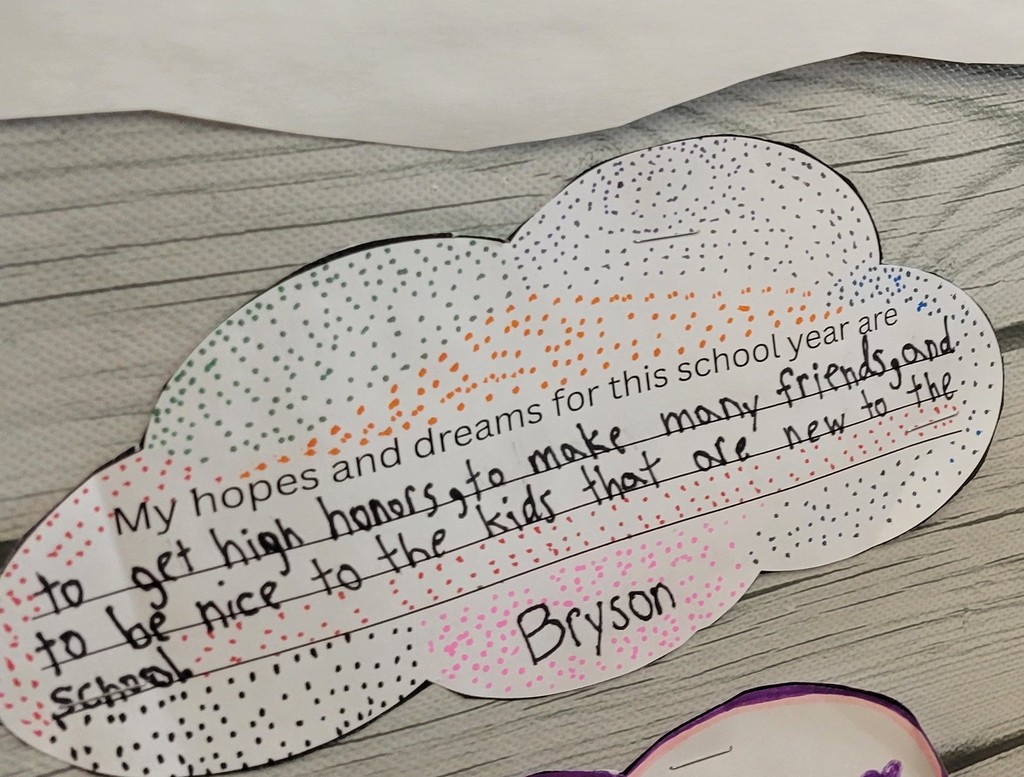 My hopes and dreams for this school year are
to get high honors, to make many friends, and
to be nice to the kids that are new to the
school
Bryson